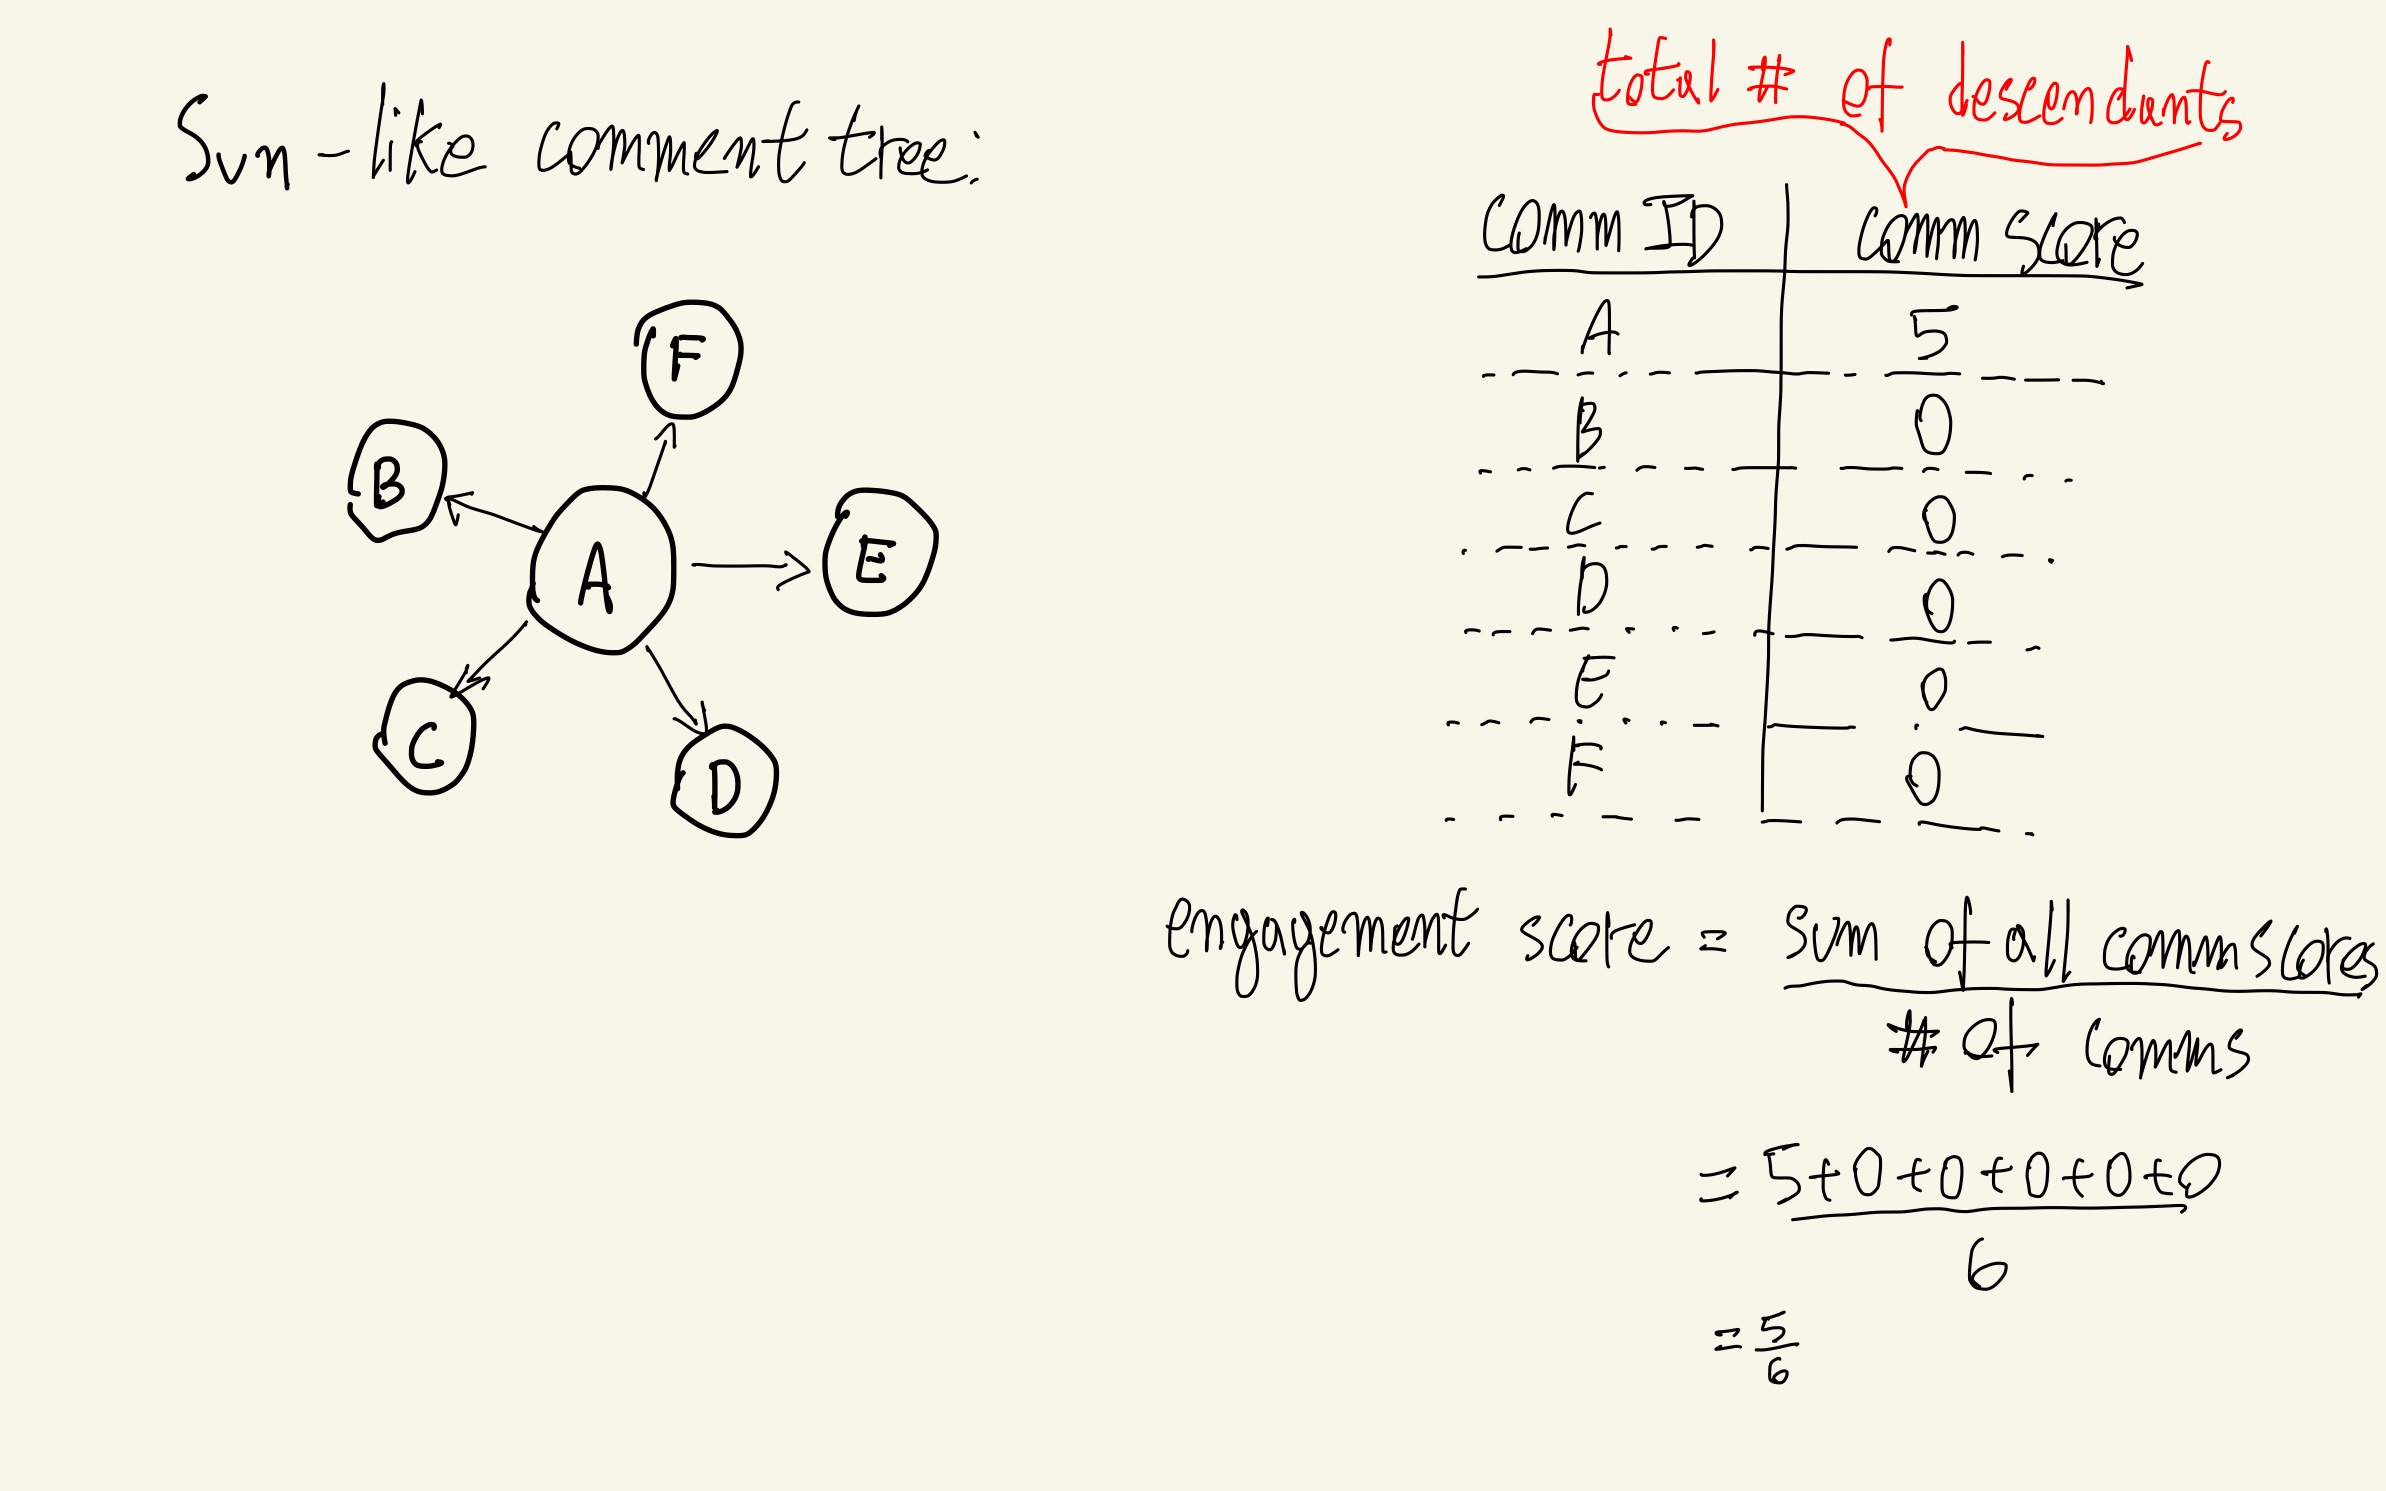 Sun-like comment tree:
total # of descendants
Comm ID comm score
A 5
B 0
C 0
D 0
E 0
F 0
F
B
E
A
C
D
engagement score = sum of all comm scores
# of comms
= 5+0+0+0+0+0
6
= 5
6